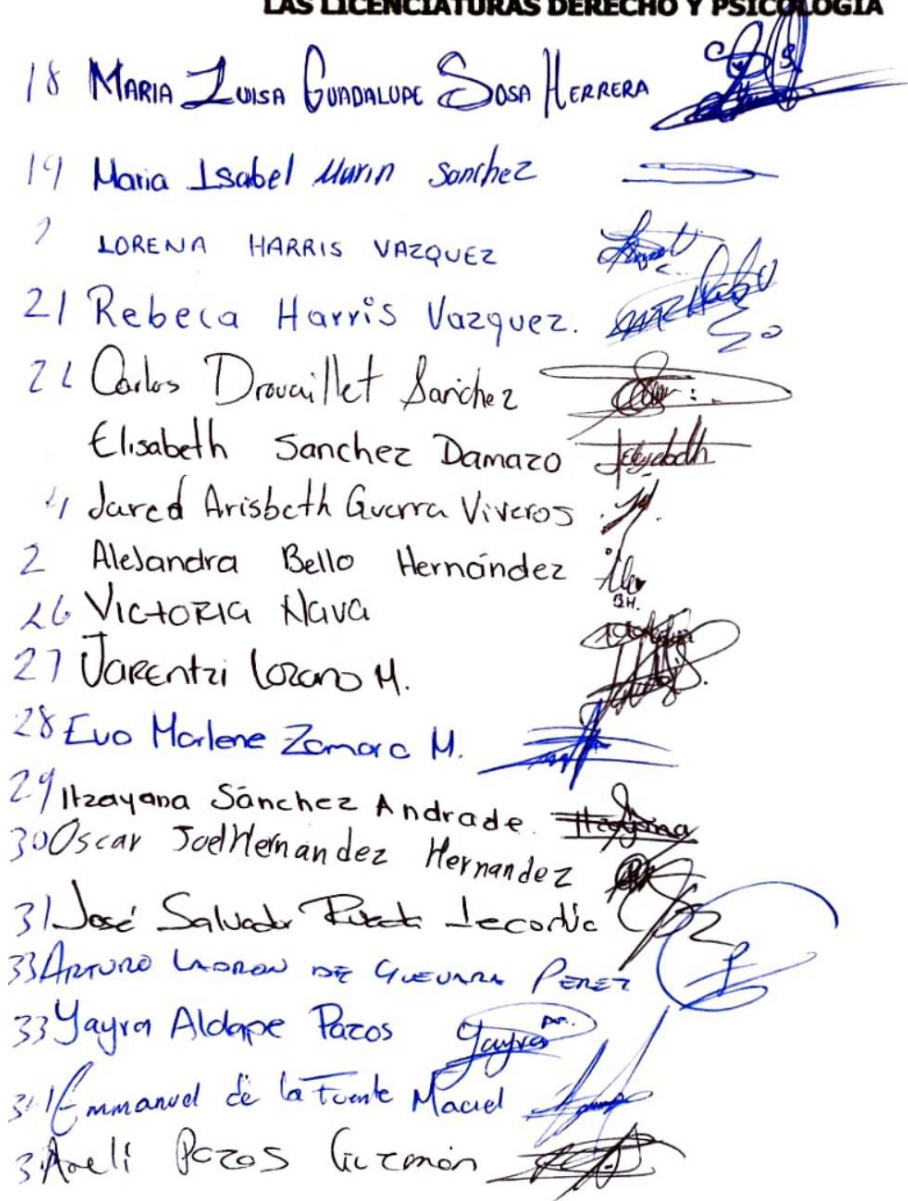 LAS LICENCIATURAS DERECHO Y PSICOLOGIA
18 MARIA LUISA GUADALUPE SOSA HERRERA
19 Maria Isabel Marin Sanchez
LORENA HARRIS VAZQUEZ
21 Rebeca Harris Vazquez.
22 Carlos Drouaillet Sanchez
Elisabeth Sanchez Damazo
Jared Arisbeth Guerra Viveros
2 Alejandra Bello Hernández
B.H.
26 VICTORIA Nava
27 Jarentzi Lozano M.
28 Eva Marlene Zamora M.
29 Itzayana Sánchez Andrade Itzayana
30 Oscar Joel Hernández Hernandez
31 José Salvador
33 ARTURO LADRON DE GUEVARA PEREZ
33 Yayra Aldape Pazos Yayra
Emmanuel de la Fuente Maciel
3 Areli Pozos Guzmón